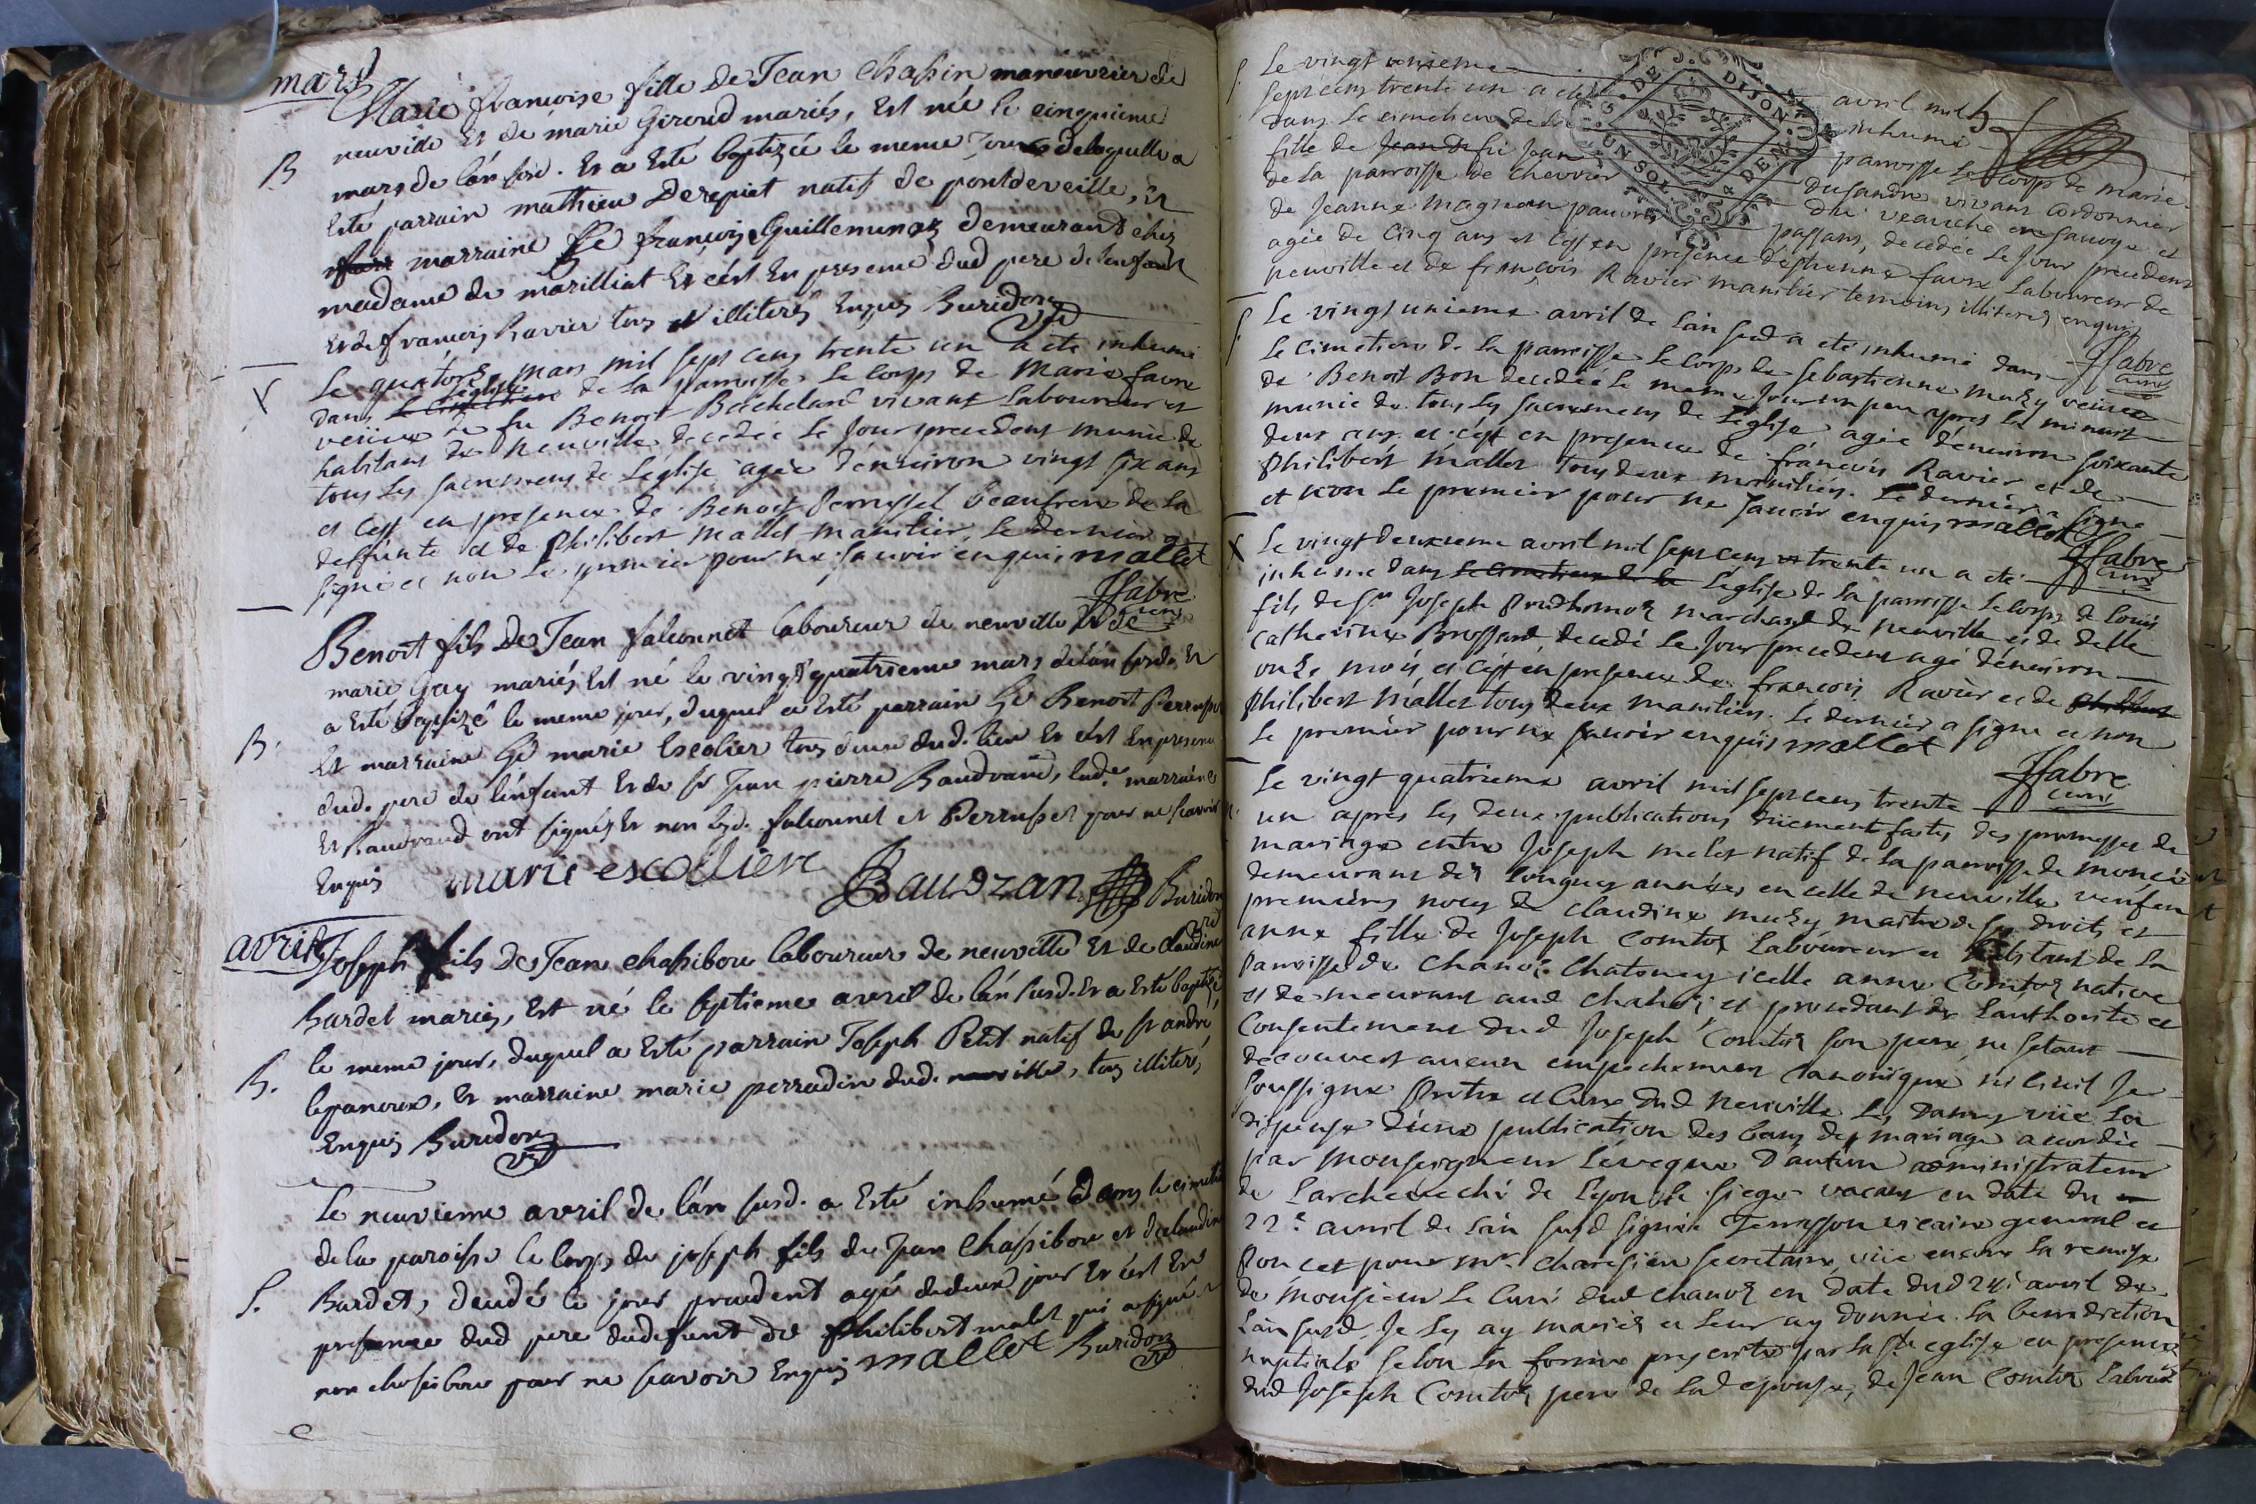 mars
Marie francoise fille de Jean Chassin maneuvrier de
neuville Et de marie Giroud mariés, Est née le cinquieme
B
mars de l'an susd. Et a Esté baptizée le meme Jour de laquelle a
Esté parrain mathieu Derepiet natif de pontdeveille, Et
marraine françoise Guillemin demeurant chés
madame de marilliat Et c'est En presence dud pere de l'enfant
Et de françois Ravier tous illiterés Enquis Buridon
Vic
Le quatorze mars mil sept cens trente un a eté inhumé
dans l'eglise de la parroisse le corps de Marie favre
veuve de fu Benoist Bachelard vivant laboureur et
habitant de Neuville decedée le Jour precedent munie de
tous les sacremens de l'eglise agée d'environ vingt six ans
et c'est en presence de Benoist Perrussel beaufrere de la
deffunte et de Philibert Mallet manilier, le dernier a
signé et non le premier pour ne sçavoir enquis mallet
Jfabre
curé
Benoit fils de Jean falconnet laboureur de neuville Et de
marie Gay mariés Est né le vingt quatrieme mars de l'an susd. Et
a Esté baptizé le meme jour, duquel a Esté parrain Benoit Perrussel
B.
Et marraine marie Escolier tous deux dud. lieu Et c'est En presence
dud. pere de l'enfant Et de sr Jean pierre Baudrand, lade. marraine
Et Baudrand ont signés Et non lesd. falconnet et Perrussel pour ne scavoir
Enquis marie escolliere Baudran Buridon
Vic
avril
Joseph fils de Jean chassibou laboureur de neuville Et de Claudine
Burdet mariés, Est né le septieme avril de l'an susd. Et a Esté baptizé
le meme jour, duquel a Esté parrain Joseph Petit natif de st andré
B.
lepanoux, Et marraine marie perradin dud. neuville, tous illiterés,
Enquis Buridon
Vic
Le neuvieme avril de l'an susd. a Esté inhumé dans le cimetiere
de la paroisse le corps de joseph fils de Jean Chassibou et de claudine
S.
Burdet, decedé le jour precedent agé de deux jour Et c'est En
presence dud pere dud defunt de philibert malet qui a signé Et
non chassibou pour ne scavoir Enquis mallet Buridon
Vic
Le vingt unieme avril mil
sept cens trente un a eté inhumé
dans le cimetiere de la parroisse le corps de marie
fille de fu Jean Dusandre vivant cordonnier
de la parroisse de Chevrier en savoye et
de Jeanne Magnon pauvres passans, decedée le Jour precedent
agée de cinq ans et c'est en presence d'estienne favre laboureur de
neuville et de françois Ravier manilier temoins illiterés enquis
Jfabre
curé
Le vingt unieme avril de l'an susd a eté inhumé dans
le cimetiere de la parroisse le corps de sebastienne Muzy veuve
de Benoist Bon decedée le meme Jour un peu apres la minuit
munie de tous les sacremens de l'eglise agée d'environ soixante
deux ans et c'est en presence de françois Ravier et de
Philibert Mallet tous deux maniliers. le dernier a signé
et non le premier pour ne sçavoir enquis mallet Jfabre
curé
Le vingt deuxieme avril mil sept cens trente un a eté
inhumé dans le cimetiere de la l'eglise de la parroisse le corps de louis
fils de sr Joseph Prudhomme marchand de neuville et de delle
catherine Brossard, decedé le Jour precedent agé d'environ
onze mois et c'est en presence de françois Ravier et de
Philibert Mallet tous deux maniliers. le dernier a signé et non
le premier pour ne sçavoir enquis mallet
Jfabre
curé
Le vingt quatrieme avril mil sept cens trente
un apres les deux publications düement faites des promesses de
mariage entre Joseph melet natif de la parroisse de
demeurant dés longues années en celle de neuville veuf en
premieres noces de claudine muzy maitre de ses droits et
anne fille de Joseph Comtet laboureur et habitant de la
Parroisse de Chanoz Chatenay icelle anne Comtet native
et demeurant aud Chanoz, et procedant de l'authorité et
consentement dud Joseph Comtet son pere, ne s'etant
decouvert aucun empechement Canonique ni Civil Je
soussigné Prêtre et Curé dud Neuville les Dames vüe la
dispense d'une publication des bans de mariage accordée
par Monseigneur L'eveque d'autun administrateur
de L'archeveché de Lyon le siege vacant en date du
22e avril de l'an susd signée Terrasson vicaire general et
Poncet pour mr. secretaire, vüe encore la remise
de Monsieur le Curé dud Chanoz en date dud 24e avril de
l'an susd, Je les ay mariés et leur ay donnée la benediction
nuptiale selon la forme prescrite par la ste eglise en presence
dud Joseph Comtet pere de lad epouse, de Jean Comtet laboureur